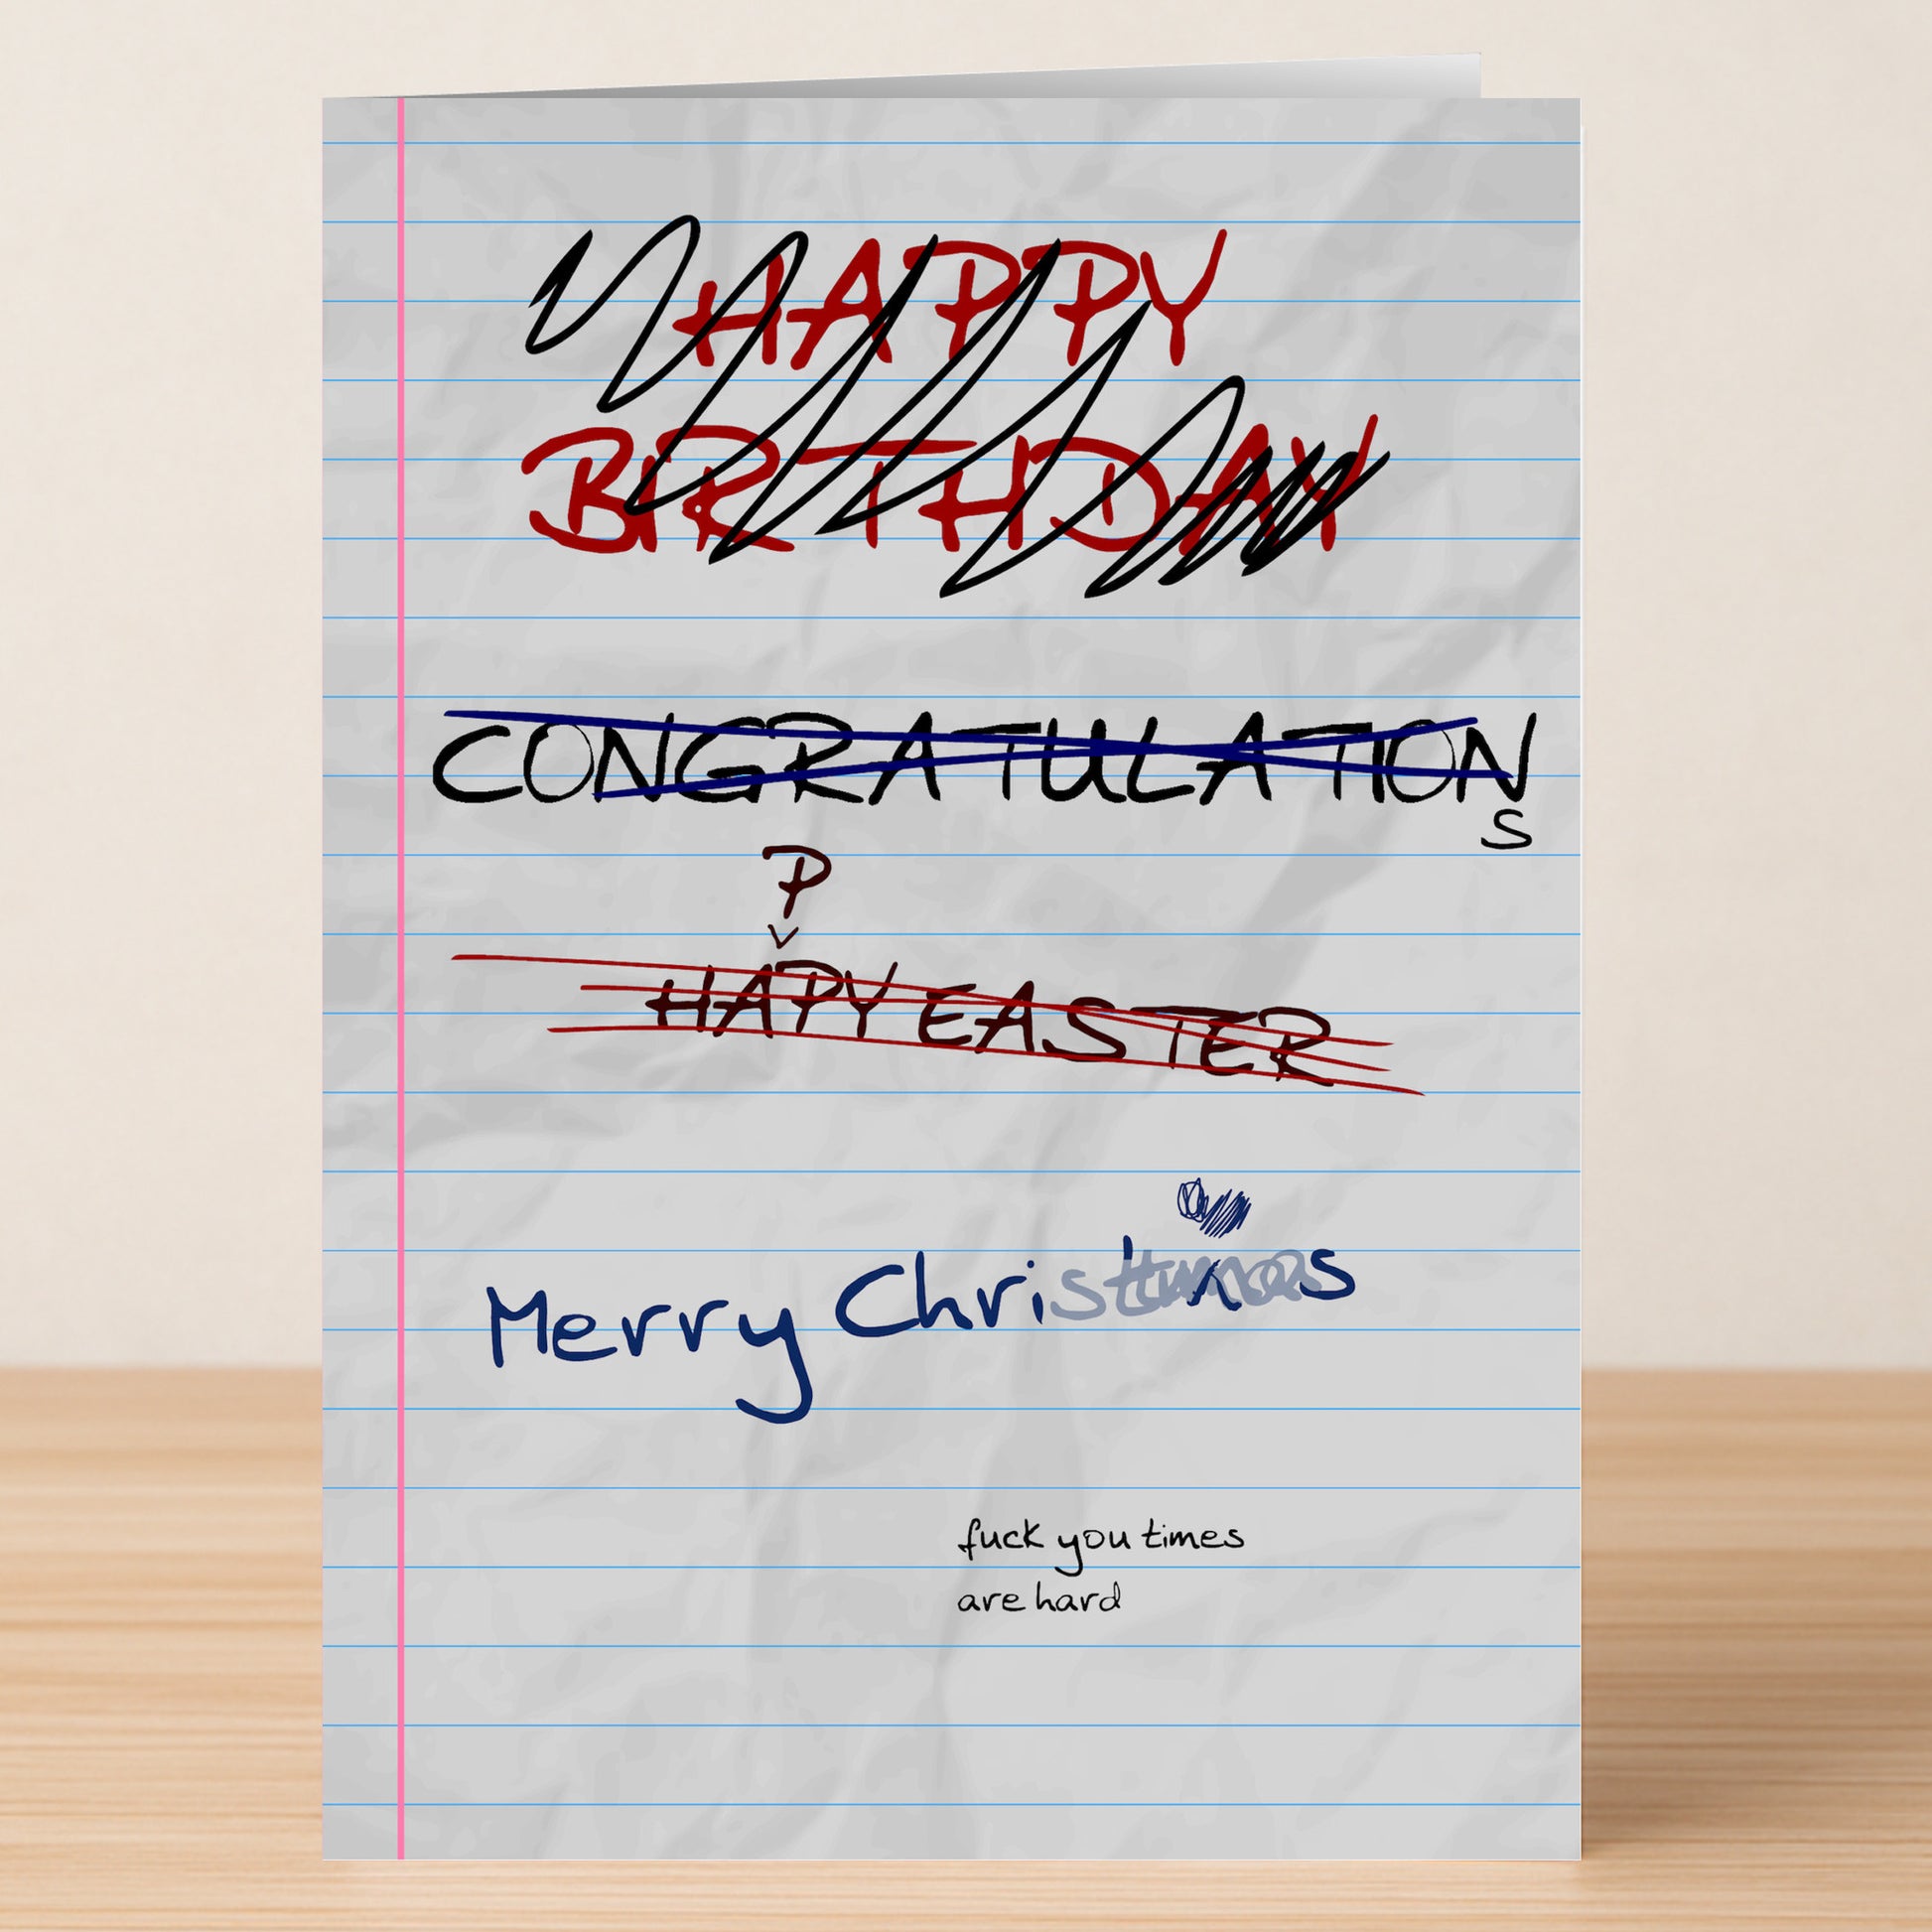 HAPPY
BIRTHDAY
CONGRATULATION
S
P
HAPY EASTER
Merry Christmas
fuck you times
are hard